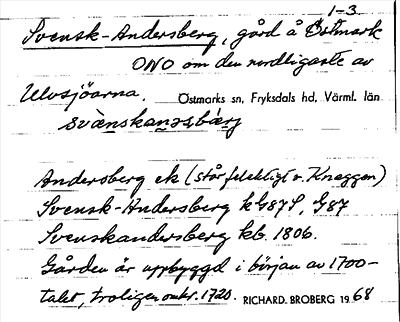 1-3
Svensk-Andersberg, gård å Östmark
ONO om den nordligaste av
Ulvsjöarna. Östmarks sn, Fryksdals hd, Värml. län
svänskanəsbärj
Andersberg ek (står felaktigt v. Knaggen)
Svensk-Andersberg kG87S, G87
Svenskandersberg kb. 1806.
Gården är uppbyggd i början av 1700-
talet, troligen omkr. 1720. RICHARD BROBERG 1968